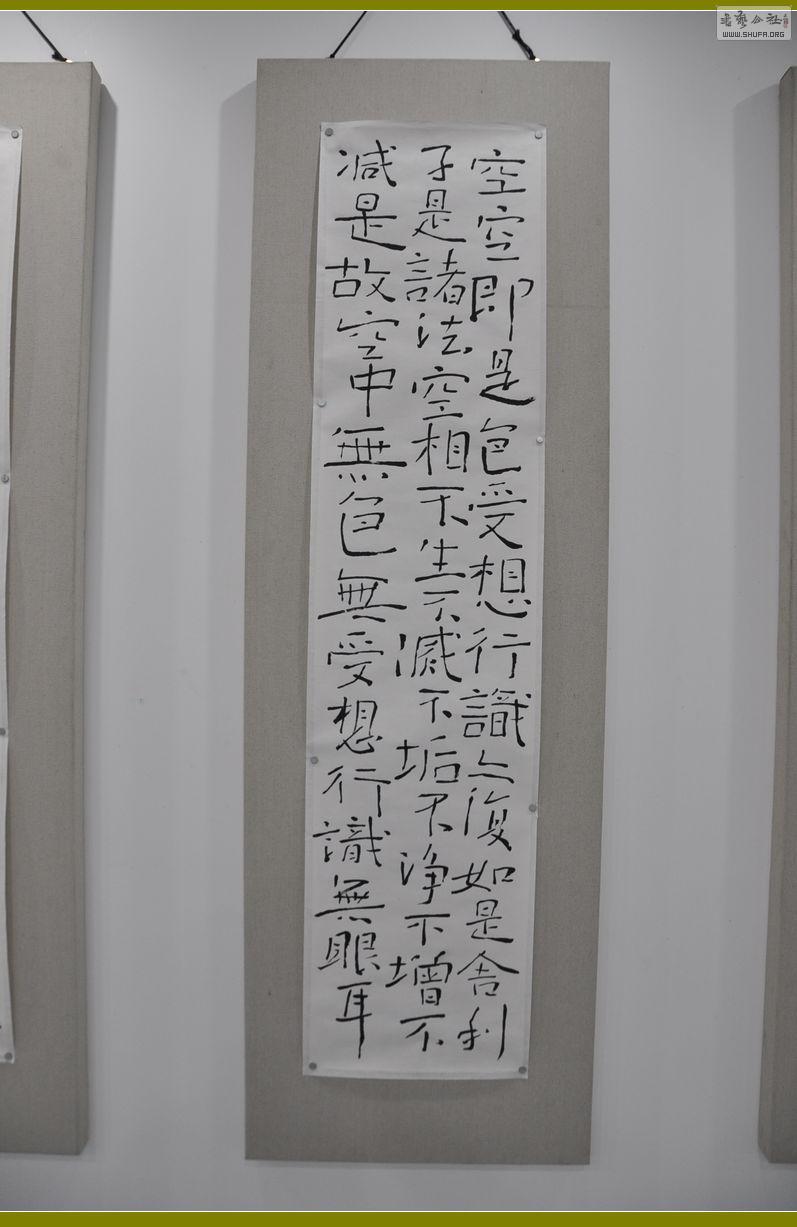 空空即是色受想行識亦復如是舍利
子是諸法空相不生不滅不垢不淨不增不
減是故空中無色無受想行識無眼耳
WWW.SHUFA.ORG